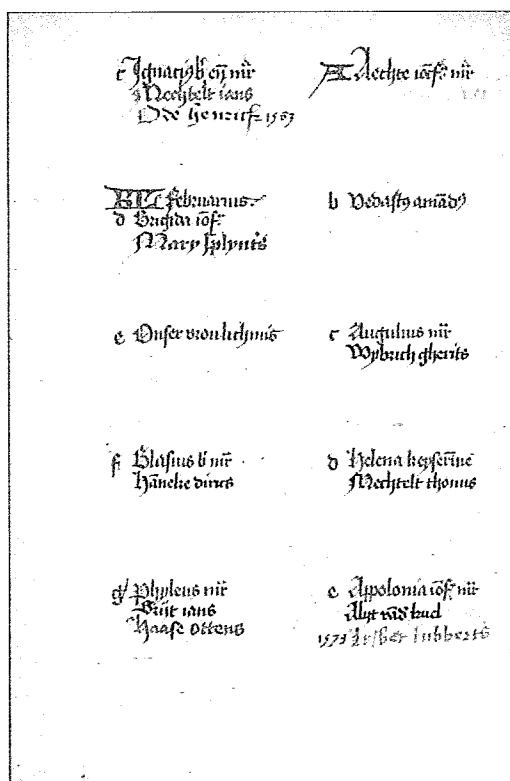 c Ignacius b en mr
Mechtelt ians
Ode henricz 1563
KL februarius
d Brigida iofr
Mary
e Onser vrou lichmis
f Blasius b mr
hāneke dircs
g Phyleus mr
ians
Haase Ottens
A Aechte iofr mr
b Vedastus amādus
c Augulius mr
Wybrich gherits
d Helena keyserīne
Mechtelt thonus
e Appolonia iofr mr
Alyt
1573 lubberts